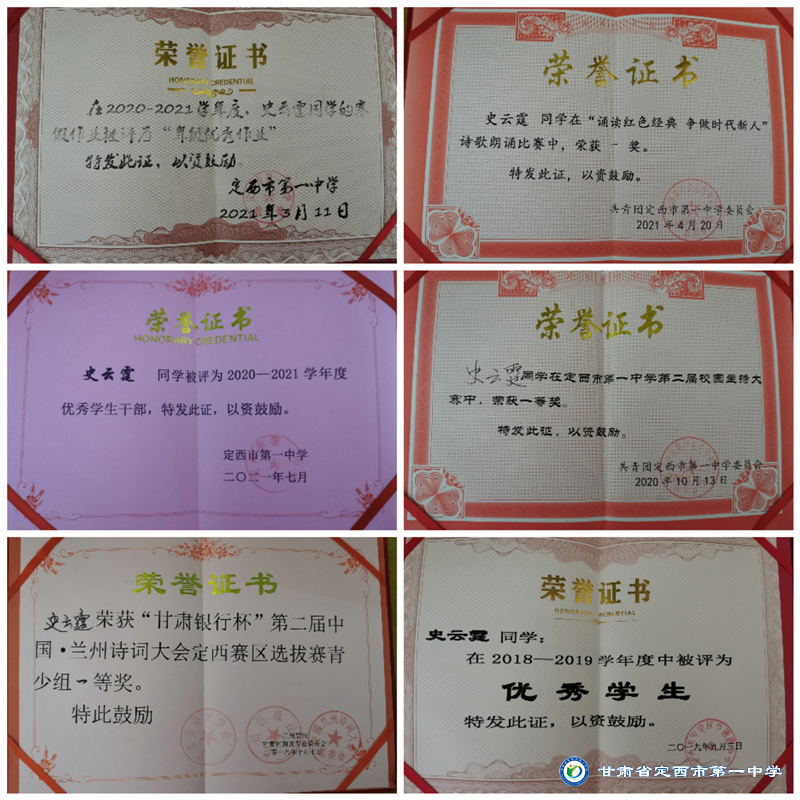 荣誉证书
HONORARY CREDENTIAL
在2020-2021学年度，史云霆同学的寒
假作业被评为“年级优秀作业”
特发此证，以资鼓励。
定西市第一中学
2021年3月11日
荣誉证书
史云霆 同学在“诵读红色经典 争做时代新人”
诗歌朗诵比赛中，荣获 一 奖。
特发此证，以资鼓励。
共青团定西市第一中学委员会
2021年4月20日
荣誉证书
HONORARY CREDENTIAL
史云霆 同学被评为2020—2021学年度
优秀学生干部，特发此证，以资鼓励。
定西市第一中学
二〇二一年七月
荣誉证书
史云霆同学在定西市第一中学第二届校园主持大
赛中，荣获一等奖。
特发此证，以资鼓励。
共青团定西市第一中学委员会
2020年10月13日
荣誉证书
史云霆荣获“甘肃银行杯”第二届中
国·兰州诗词大会定西赛区选拔赛青
少组一等奖。
特此鼓励
荣誉证书
HONORARY CREDENTIAL
史云霆 同学：
在2018—2019学年度中被评为
优秀学生
特发此证，以资鼓励。
二〇一九年九月三日
甘肃省定西市第一中学